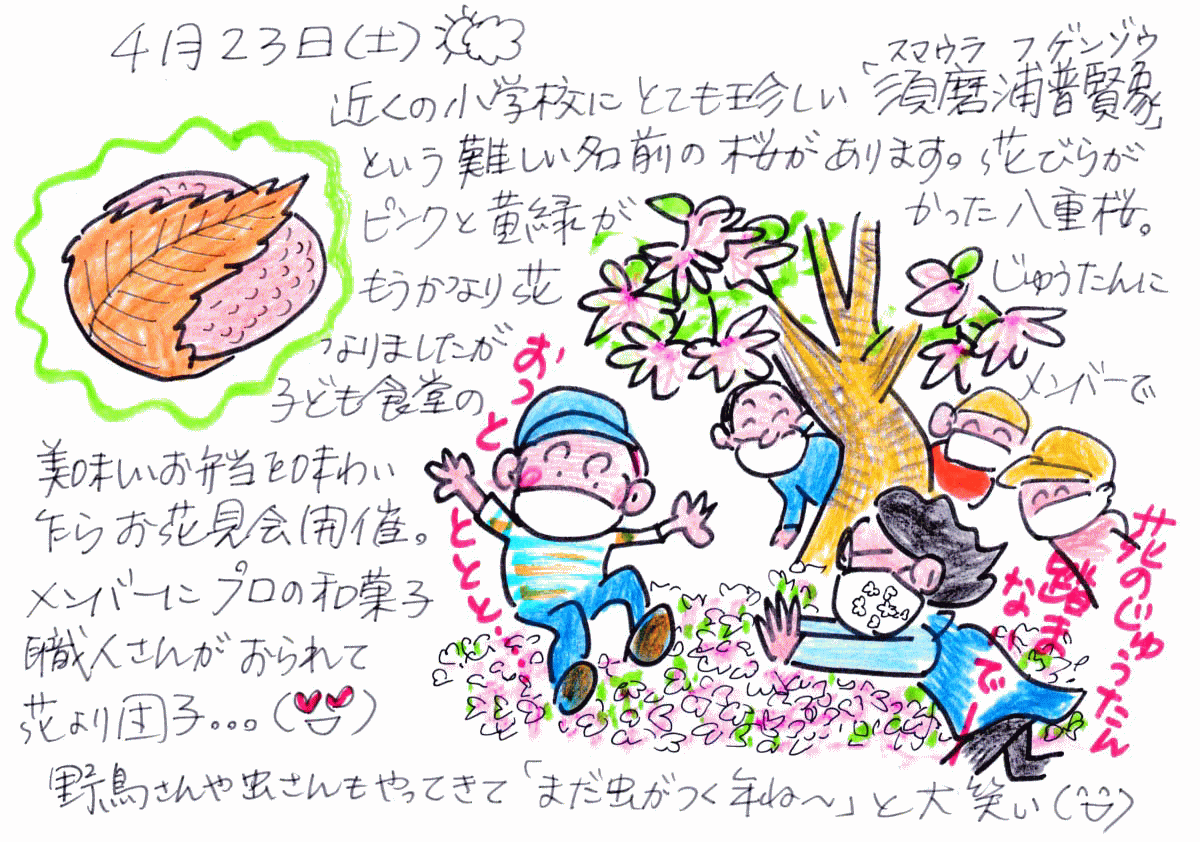 4月23日(土)
スマウラ フゲンゾウ
近くの小学校にとても珍しい「須磨浦普賢象」
という難しい名前の桜があります。花びらが
ピンクと黄緑が かった八重桜。
もうかなり花 じゅうたんに
なりましたが メンバーで
子ども食堂の
美味しいお弁当を味わい
乍らお花見会開催。
メンバーにプロの和菓子
職人さんがおられて
花より団子...(
野鳥さんや虫さんもやってきて「まだ虫がつく年ね〜」と大笑い(
おっと
ととと...
花のじゅうたん
踏まな
いでー